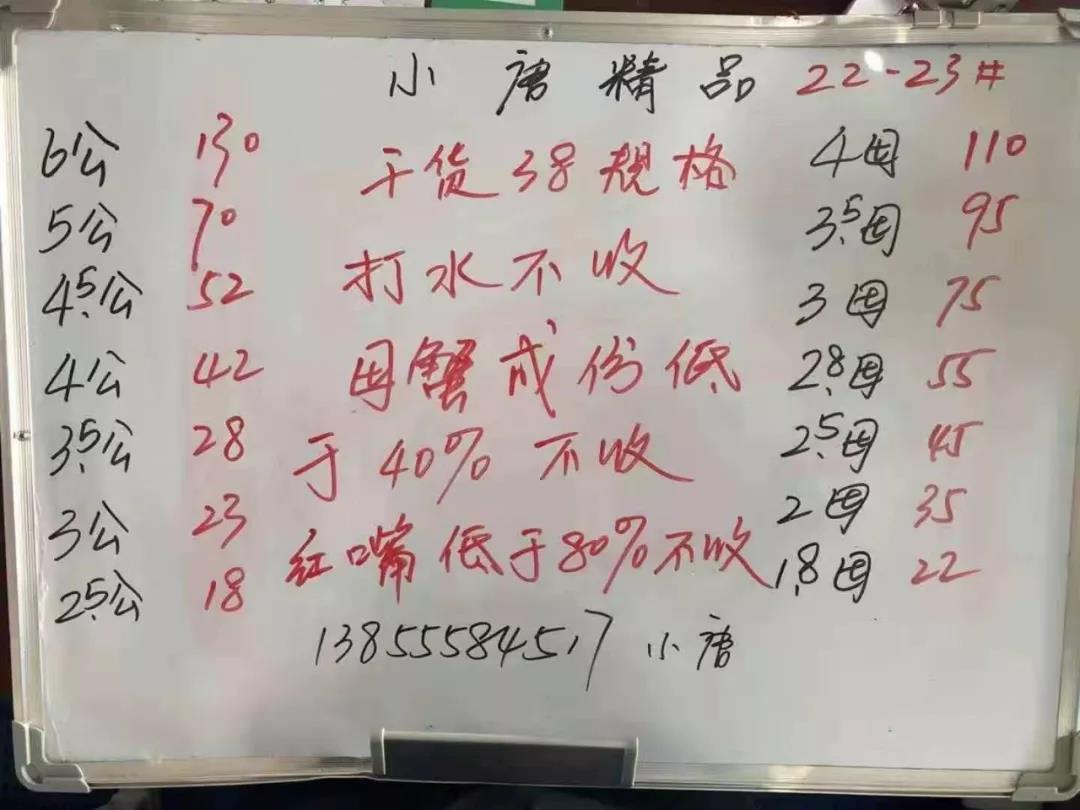 小唐精品 22-23#
6公 130 干货38规格 4母 110
5公 70 3.5母 95
4.5公 52 打水不收 3母 75
4公 42 母蟹成份低 2.8母 55
3.5公 28 于40%不收 2.5母 45
3公 23 2母 35
2.5公 18 红嘴低于80%不收 1.8母 22
13855584517 小唐